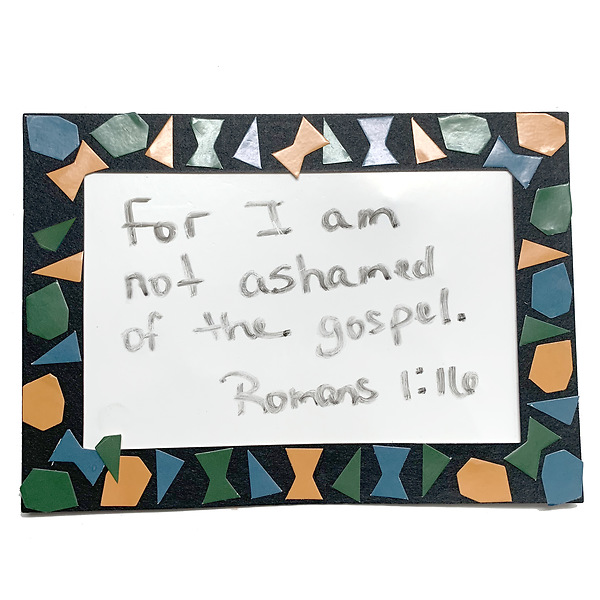 For I am
not ashamed
of the gospel.
Romans 1:16